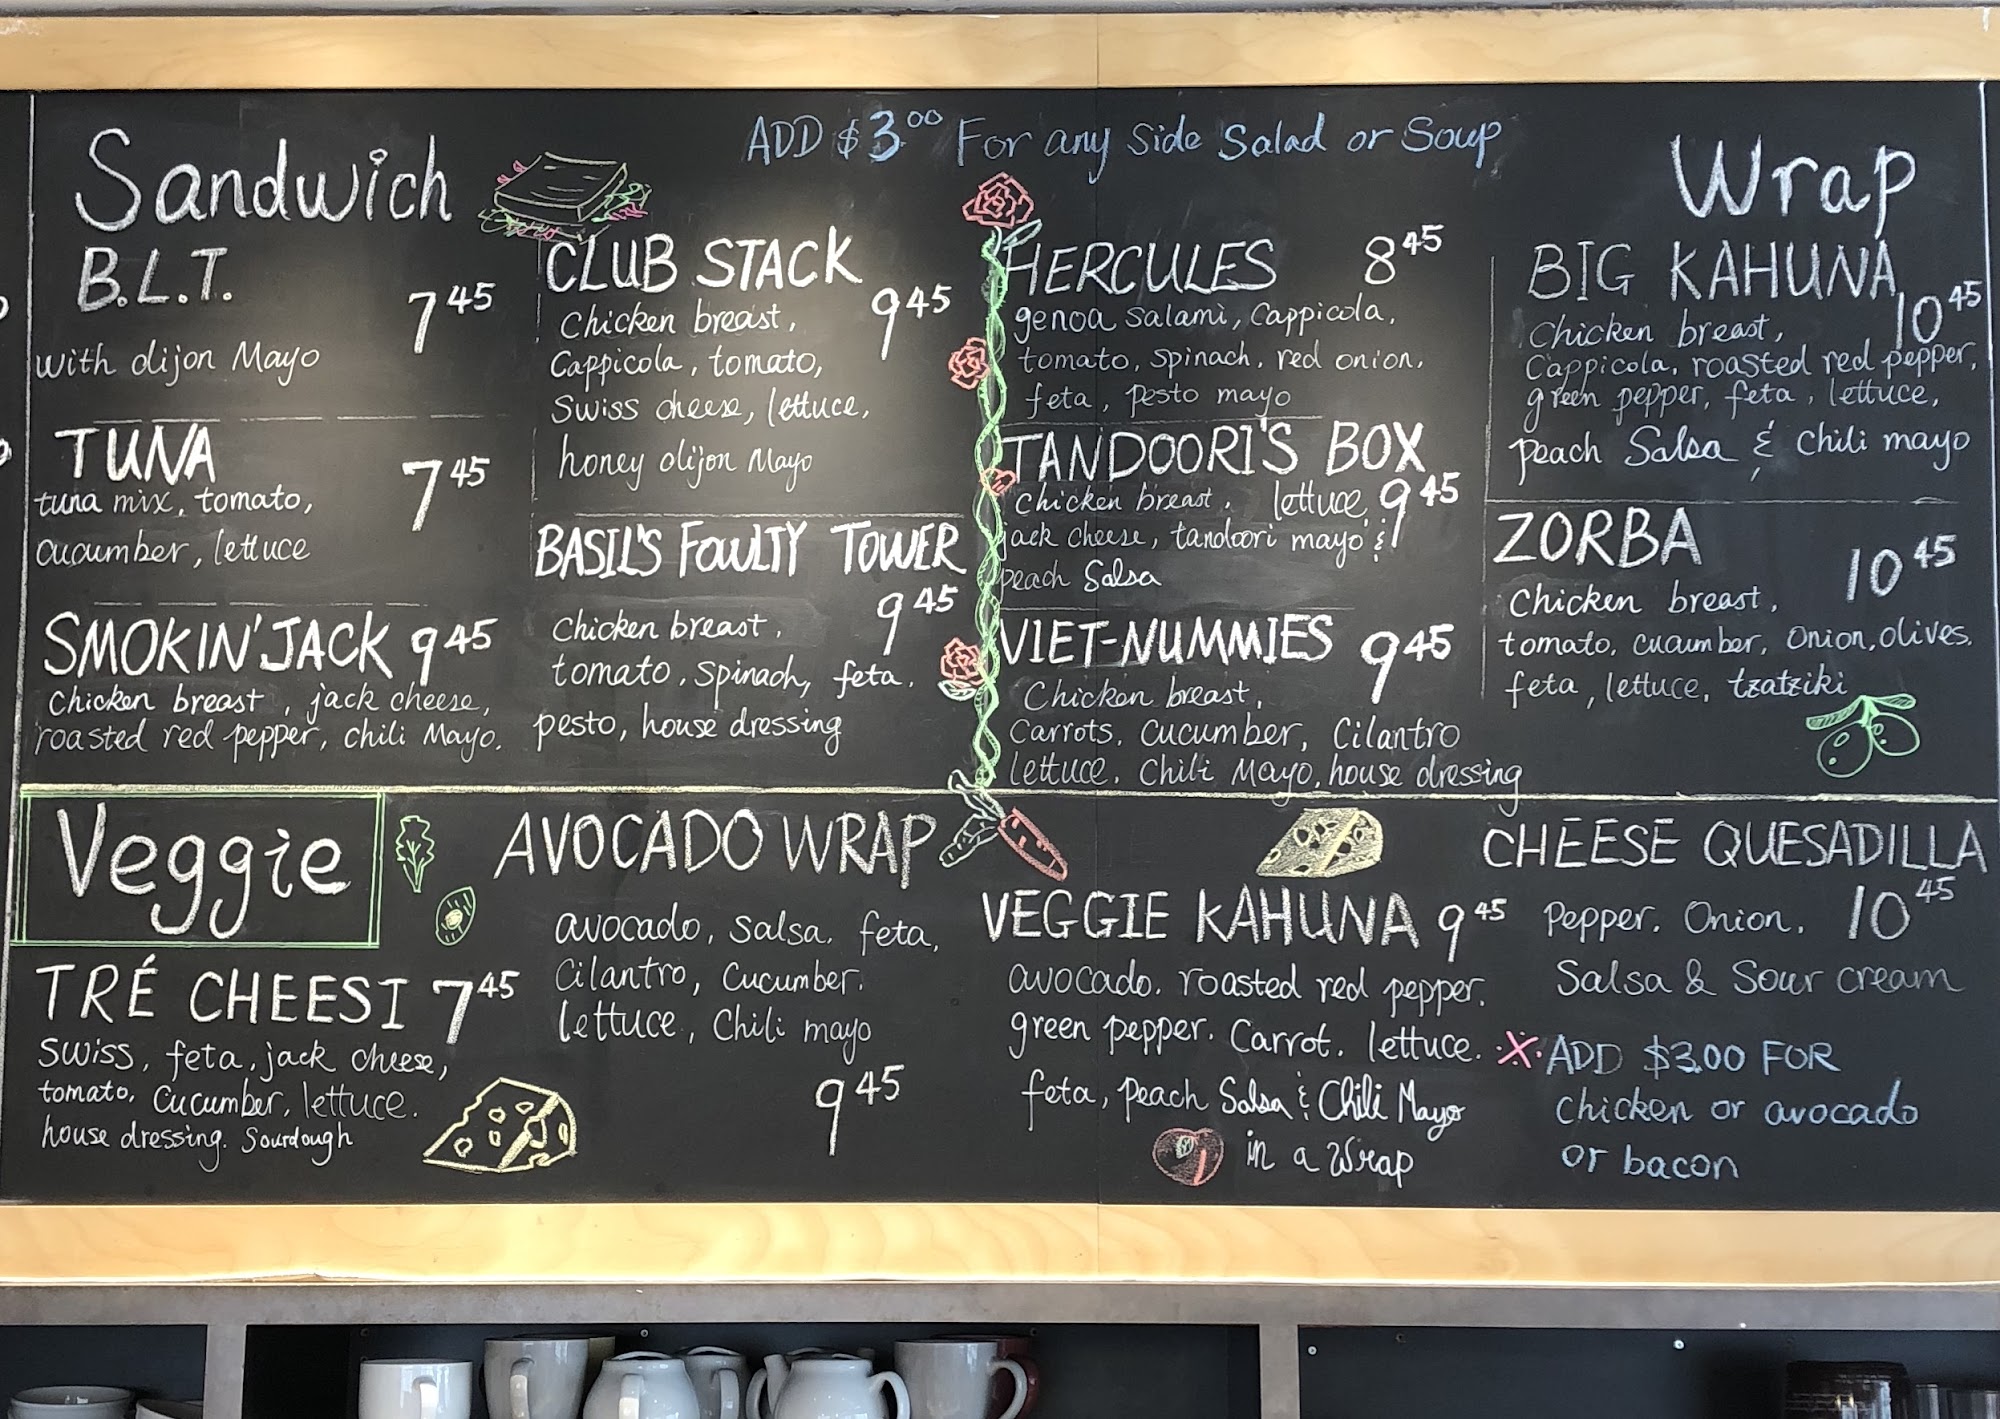 ADD $3.00 For any Side Salad or Soup
Sandwich
B.L.T.
7.45
with dijon Mayo
TUNA
7.45
tuna mix, tomato,
cucumber, lettuce
SMOKIN' JACK 9.45
Chicken breast, jack cheese,
roasted red pepper, chili Mayo.
CLUB STACK
9.45
Chicken breast,
Cappicola, tomato,
Swiss cheese, lettuce,
honey dijon Mayo
BASIL'S FOULTY TOWER
9.45
Chicken breast,
tomato, spinach, feta,
pesto, house dressing
Wrap
HERCULES 8.45
genoa salami, Cappicola,
tomato, spinach, red onion,
feta, pesto mayo
TANDOORI'S BOX
Chicken breast, lettuce, 9.45
jack cheese, tandoori mayo &
peach Salsa
VIET-NUMMIES 9.45
Chicken breast,
Carrots, Cucumber, Cilantro
lettuce, Chili Mayo, house dressing
BIG KAHUNA
10.45
Chicken breast,
Cappicola, roasted red pepper,
green pepper, feta, lettuce,
peach Salsa & chili mayo
ZORBA
10.45
Chicken breast,
tomato, cucumber, onion, olives,
feta, lettuce, tzatziki
Veggie
TRÉ CHEESI 7.45
Swiss, feta, jack cheese,
tomato, cucumber, lettuce.
house dressing. Sourdough
AVOCADO WRAP
avocado, salsa, feta,
Cilantro, Cucumber,
lettuce, Chili mayo
9.45
VEGGIE KAHUNA 9.45
avocado, roasted red pepper,
green pepper, Carrot, lettuce.
feta, peach Salsa & Chili Mayo
in a Wrap
CHEESE QUESADILLA
10.45
Pepper, Onion,
Salsa & Sour cream
ADD $3.00 FOR
Chicken or avocado
or bacon